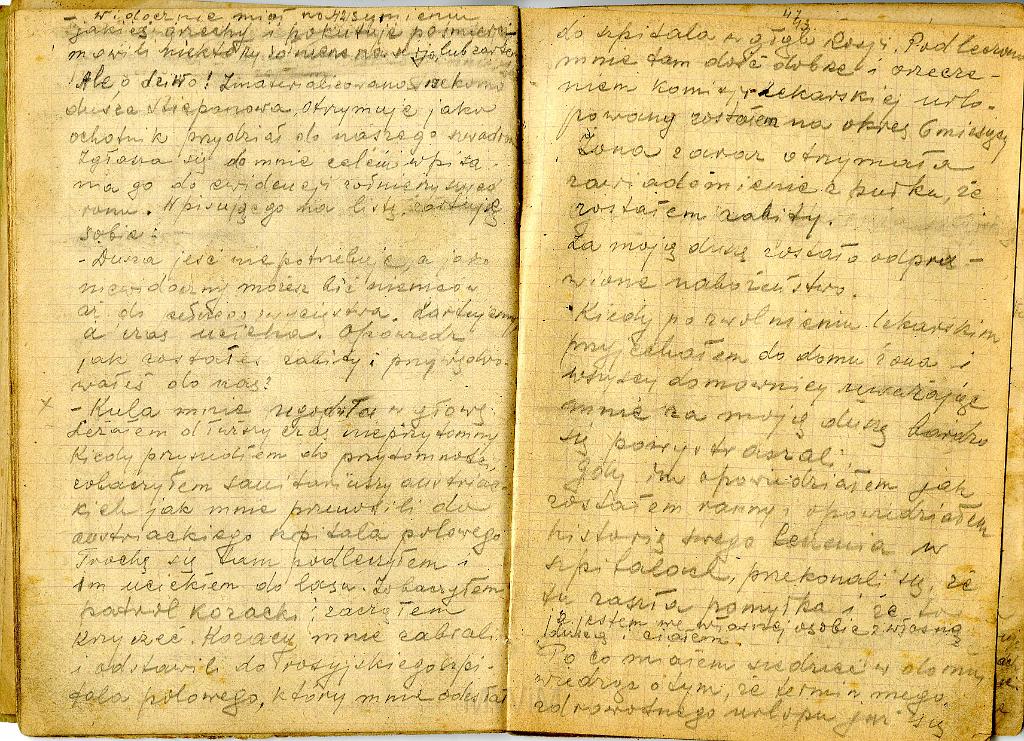 - Widocznie miał na sumieniu
jakieś grzechy i pokutuje po śmierci
mówili niektórzy żołnierze na serjo, lub żartem
Ale o dziwo! Zmaterializowana rzekomo
dusza Stiepanowa, otrzymuje jako
ochotnik przydział do naszego szwadronu
Zgłasza się do mnie celem wpisa-
nia go do ewidencji żołnierzy szwad
ronu. Wpisując go na listę, żartuję
sobie:
- Dusza jeść nie potrzebuje, a jako
niewidoczny możesz bić niemców
aż do całego zwycięstwa. Żartujemy
a czas ucieka. Opowiedz
jak zostałeś zabity i przywędro-
wałeś do nas?
x - Kula mnie ugodziła w głowę.
Leżałem dłuższy czas nieprzytomny
Kiedy przyszedłem do przytomności,
zobaczyłem sanitariuszy austriac-
kich jak mnie przenosili do
austriackiego szpitala polowego
Trochę się tam podleczyłem i
tam uciekłem do lasu. Zobaczyłem
patrol kozacki i zacząłem
krzyczeć. Kozacy mnie zabrali
i odstawili do rosyjskiego szpi-
tala polowego, który mnie odesłał
47
43
do szpitala w głąb Rosji. Podleczono
mnie tam dość dobrze i orzecze-
niem Komisji lekarskiej urlo-
powany zostałem na okres 6 miesięcy
Żona zaraz otrzymała
zawiadomienie z pułku, że
zostałem zabity.
Za moją duszę zostało odpra-
wione nabożeństwo.
Kiedy po zwolnieniu lekarskim
przyjechałem do domu żona i
wszyscy domownicy uważając
mnie za moją duszę bardzo
się powystraszali.
Gdy im opowiedziałem jak
zostałem ranny i opowiedziałem
historię swego leczenia w
szpitalach, przekonali się, że
tu zaszła pomyłka i że to
ja jestem we własnej osobie z własną
duszą i ciałem.
Po co miałem siedzieć w domu
wiedząc o tym, że termin mego
zdrowotnego urlopu już się